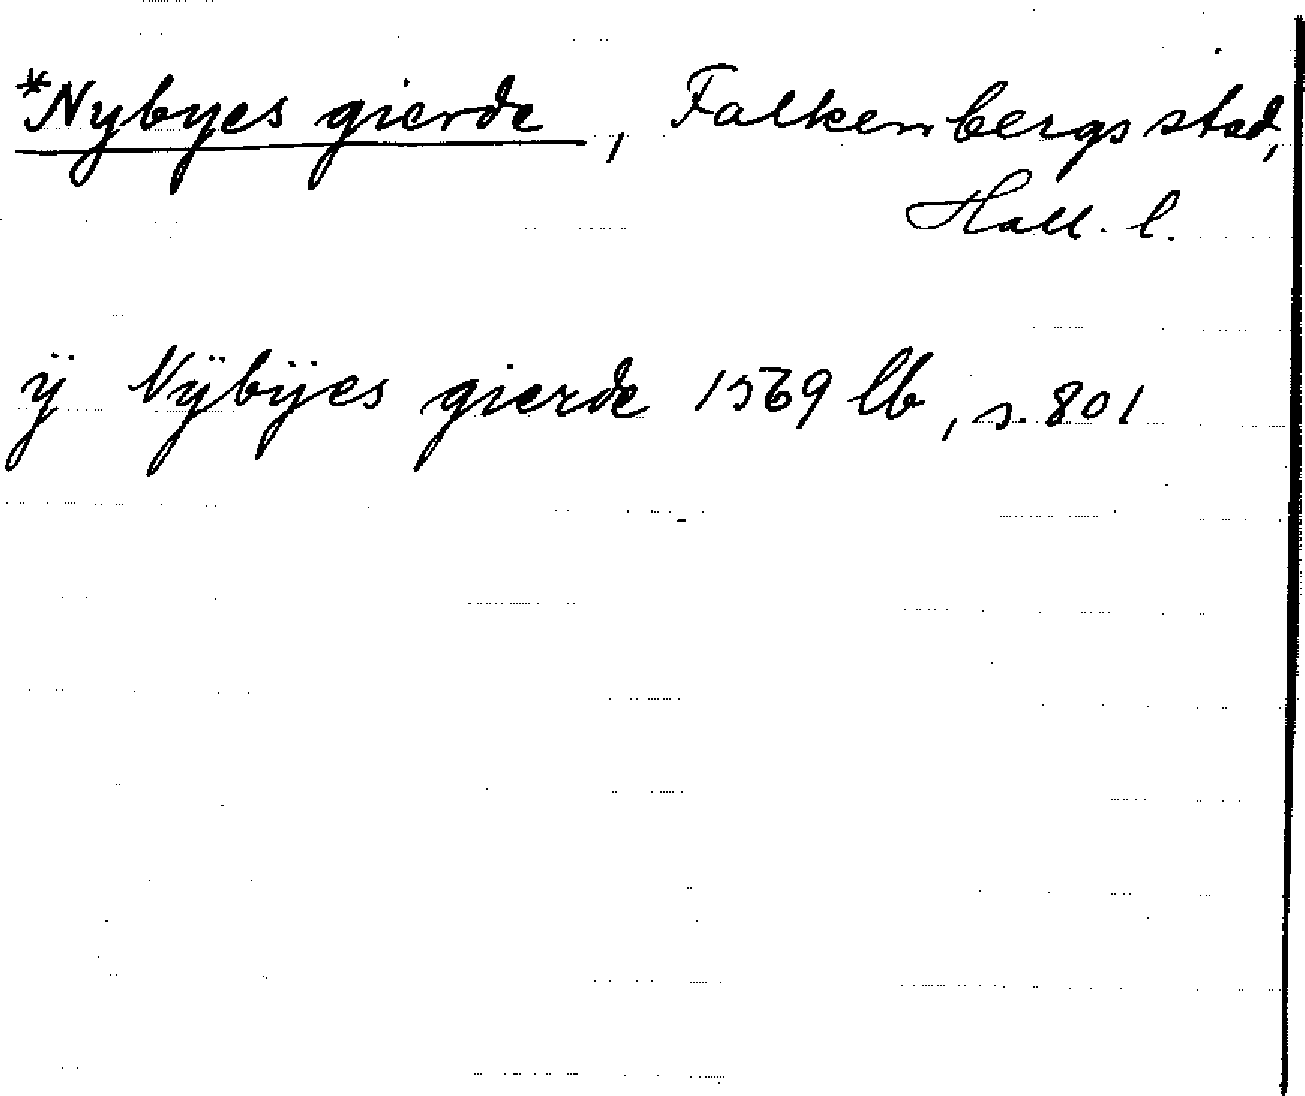 *Nybyes gierde, Falkenbergs stad,
Hall. l.
ÿ Nÿbÿes gierde 1569 lb, s. 801